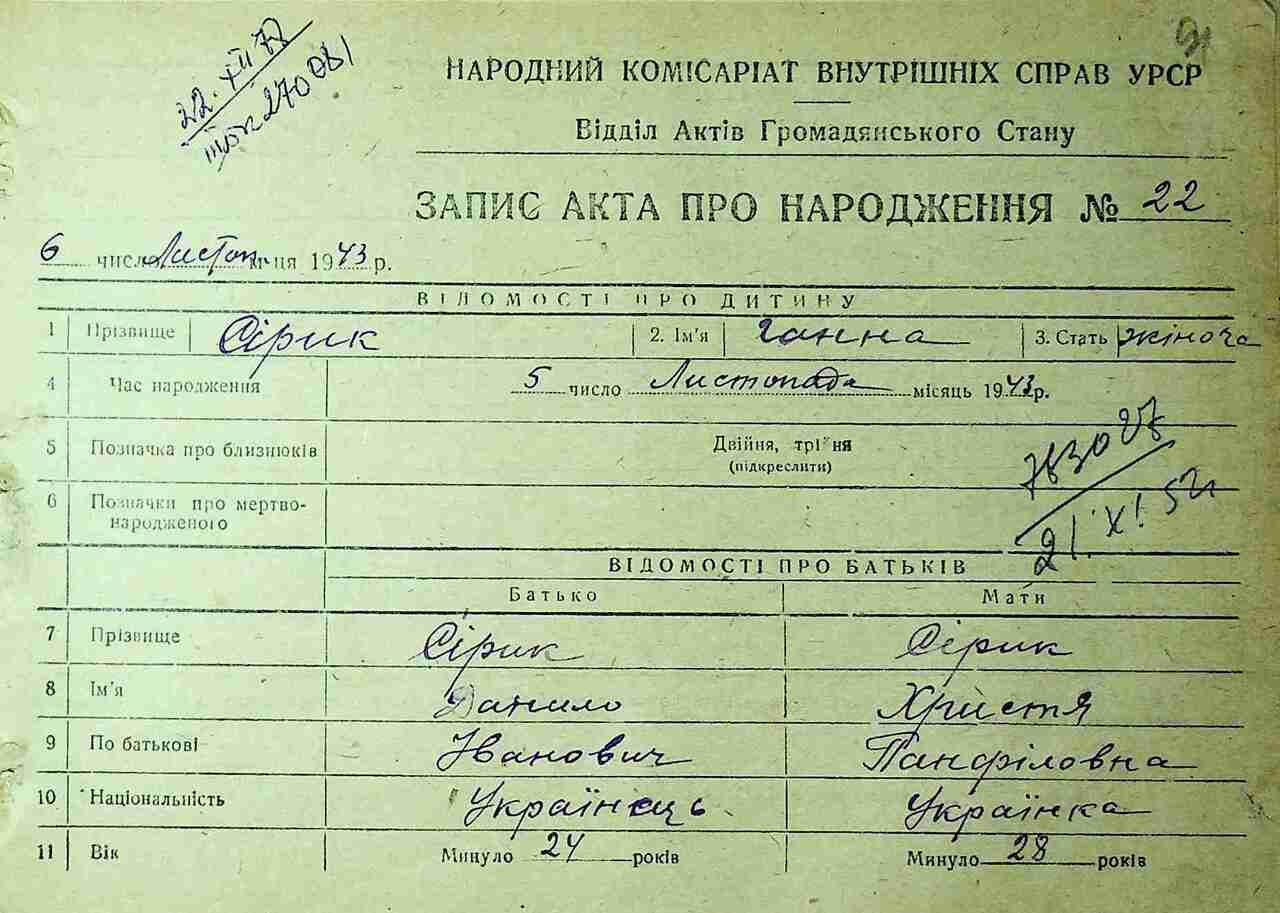 22. XII 78
270081
21
НАРОДНИЙ КОМІСАРІАТ ВНУТРІШНІХ СПРАВ УРСР
Відділ Актів Громадянського Стану
ЗАПИС АКТА ПРО НАРОДЖЕННЯ № 22
6 число Листоп. м-ця 1943 р.
ВІДОМОСТІ ПРО ДИТИНУ
1 Прізвище Сірик 2. Ім'я Ганна 3. Стать жіноча
4 Час народження 5 число Листопада місяць 1943 р.
5 Позначка про близнюків Двійня, трійня
(підкреслити)
783027
6 Позначки про мертво-
народженого
21. XI. 52
ВІДОМОСТІ ПРО БАТЬКІВ
Батько Мати
7 Прізвище Сірик Сірик
8 Ім'я Данило Христя
9 По батькові Иванович Панфіловна
10 Національність Українець Українка
11 Вік Минуло 24 років Минуло 28 років